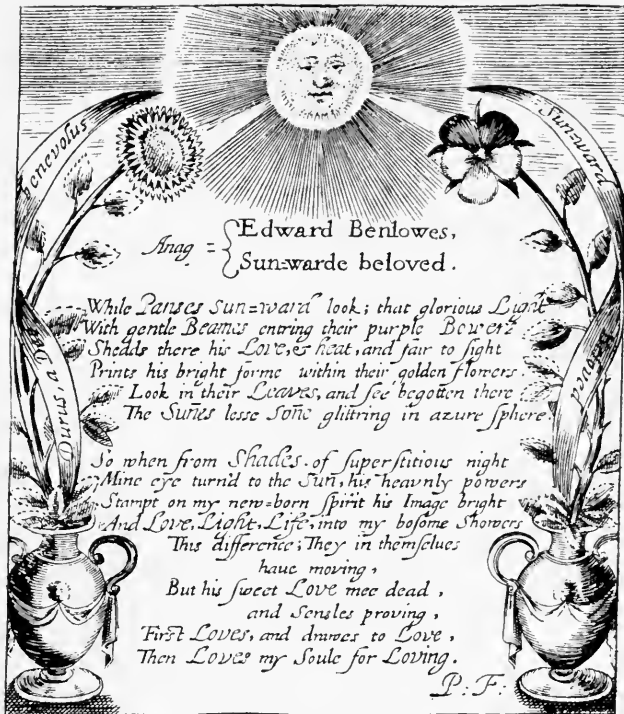 Benevolus
Sun=ward
Anag = Edward Benlowes,
Sun=warde beloved.
Durus, a Deo
Beloved
While Panses Sun=ward look; that glorious Light
With gentle Beames entring their purple Bowers
Sheads there his Love, & heat, and fair to sight
Prints his bright forme within their golden flowers.
Look in their Leaves, and see begotten there
The Sunes lesse Sone glittring in azure sphere
So when from Shades of superstitious night
Mine eye turn'd to the Sun, his heavnly powers
Stampt on my new=born spirit his Image bright
And Love, Light, Life, into my bosome Showers
This difference; They in themselues
haue moving,
But his sweet Love mee dead,
and Sensles proving,
First Loves, and drawes to Love,
Then Loves my Soule for Loving.
P: F: